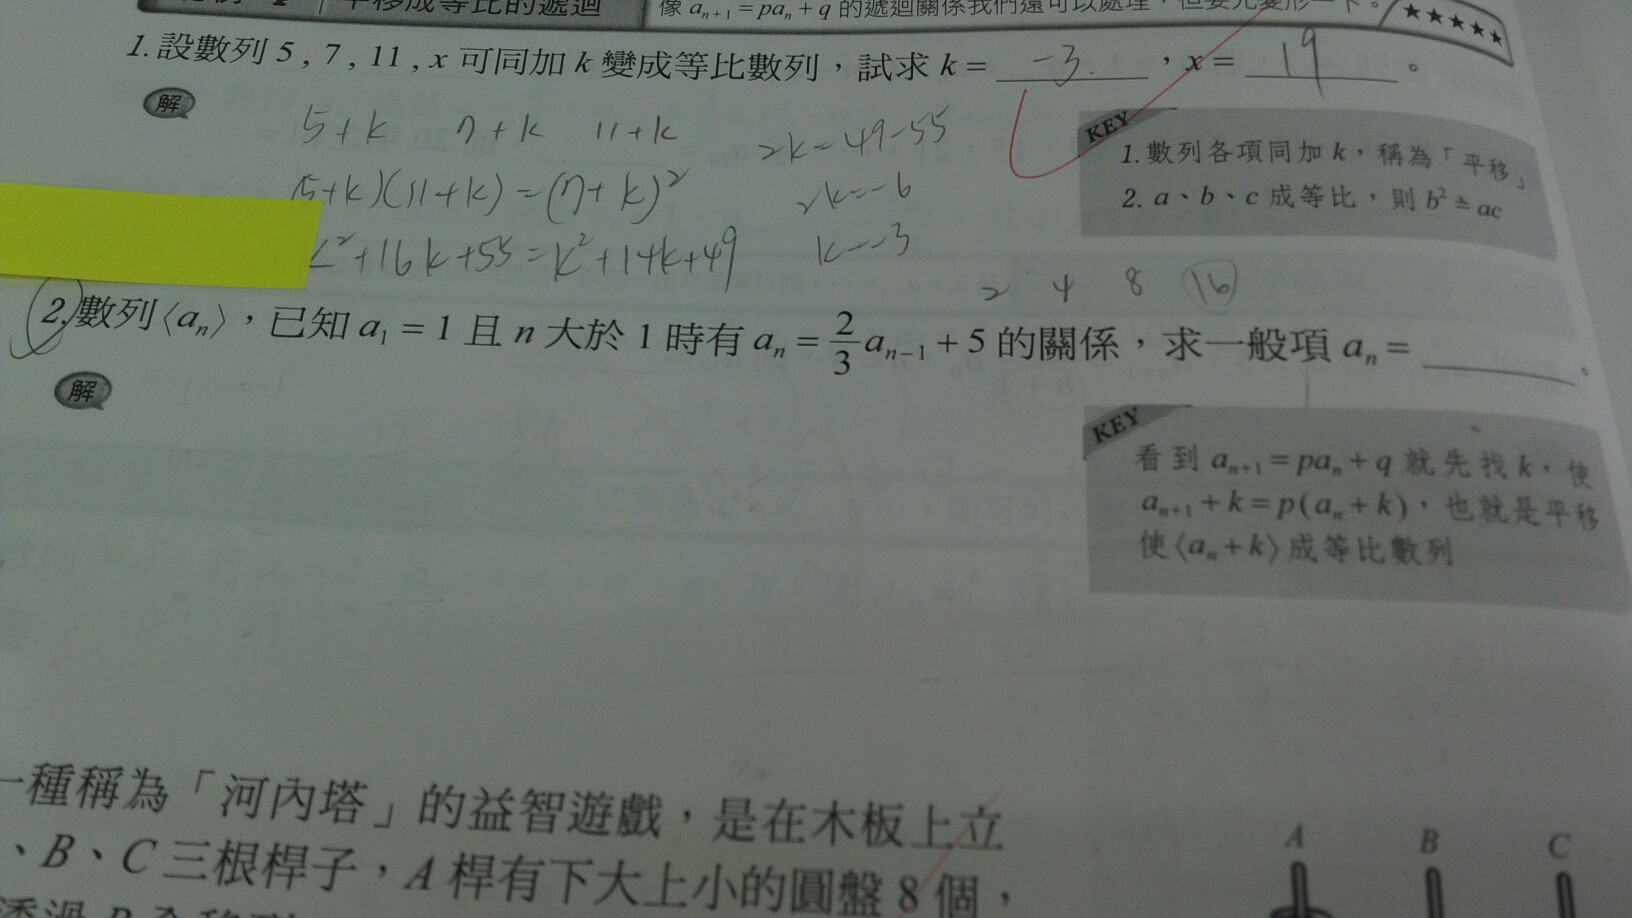 平移成等比的遞迴
像 aₙ₊₁ = paₙ + q 的遞迴關係我們還可以處理，但要先變形一下。
★★★★★
1. 設數列 5 , 7 , 11 , x 可同加 k 變成等比數列，試求 k = -3 ，x = 19 。
解
5+k 7+k 11+k
(5+k)(11+k) = (7+k)²
k²+16k+55 = k²+14k+49
2k = 49-55
2k = -6
k = -3
KEY
1. 數列各項同加 k，稱為「平移」
2. a、b、c 成等比，則 b² = ac
2 4 8 16
2. 數列⟨aₙ⟩，已知 a₁ = 1 且 n 大於 1 時有 aₙ = 2/3 aₙ₋₁ + 5 的關係，求一般項 aₙ = 。
解
KEY
看到 aₙ₊₁ = paₙ + q 就先找 k，使
aₙ₊₁ + k = p(aₙ + k)，也就是平移
使⟨aₙ + k⟩成等比數列
一種稱為「河內塔」的益智遊戲，是在木板上立
、B、C 三根桿子，A 桿有下大上小的圓盤 8 個，
A B C